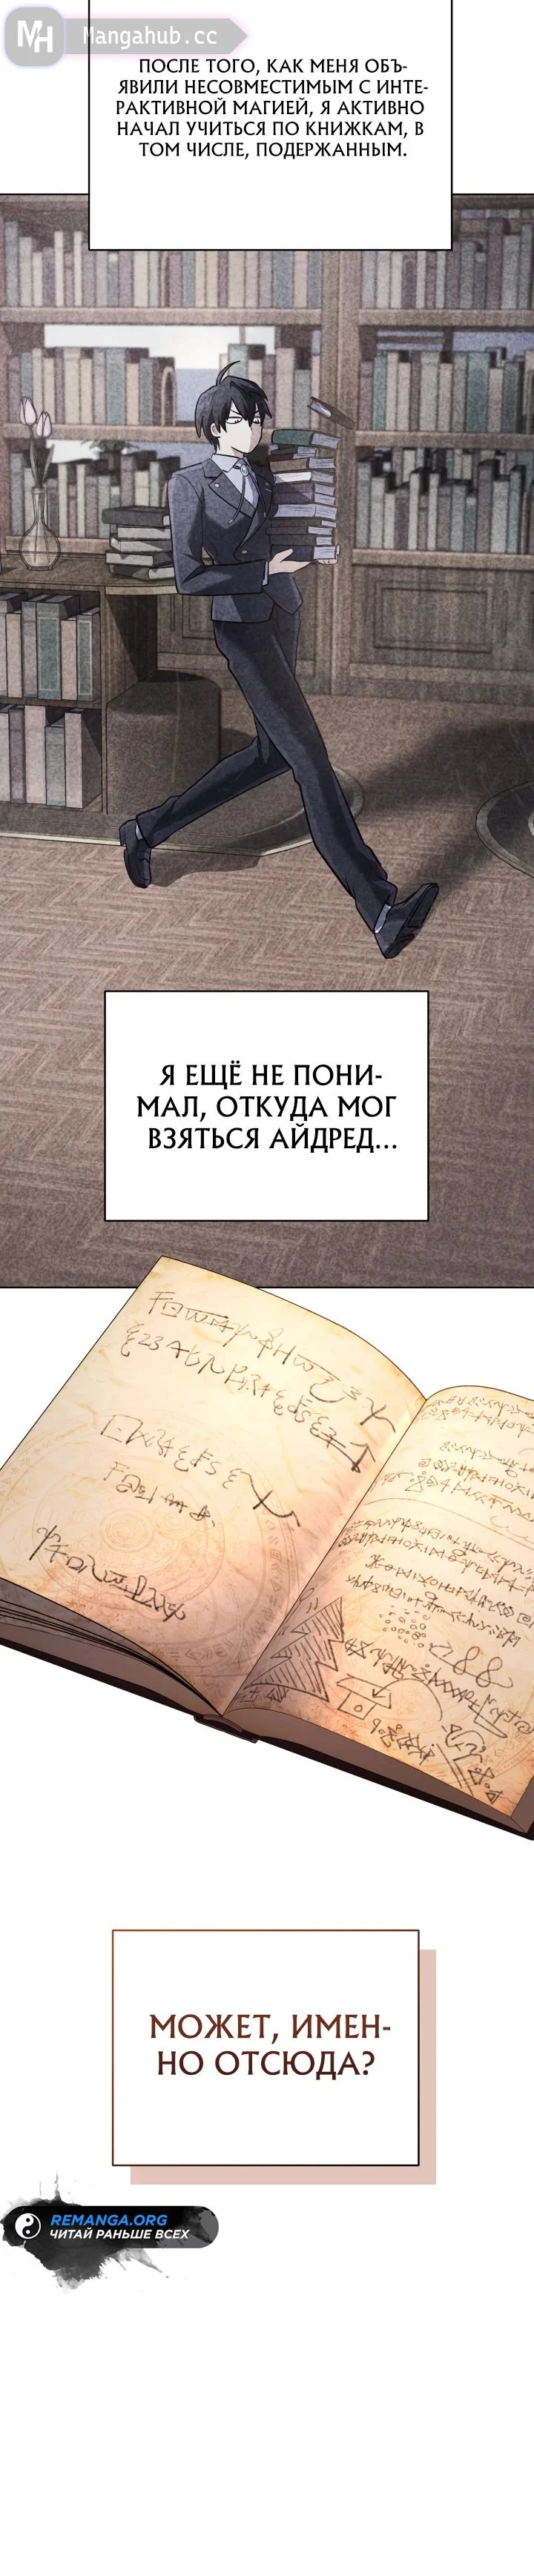 MH Mangahub.cc
ПОСЛЕ ТОГО, КАК МЕНЯ ОБЪ-
ЯВИЛИ НЕСОВМЕСТИМЫМ С ИНТЕ-
РАКТИВНОЙ МАГИЕЙ, Я АКТИВНО
НАЧАЛ УЧИТЬСЯ ПО КНИЖКАМ, В
ТОМ ЧИСЛЕ, ПОДЕРЖАННЫМ.
Я ЕЩЁ НЕ ПОНИ-
МАЛ, ОТКУДА МОГ
ВЗЯТЬСЯ АЙДРЕД...
МОЖЕТ, ИМЕН-
НО ОТСЮДА?
REMANGA.ORG
ЧИТАЙ РАНЬШЕ ВСЕХ